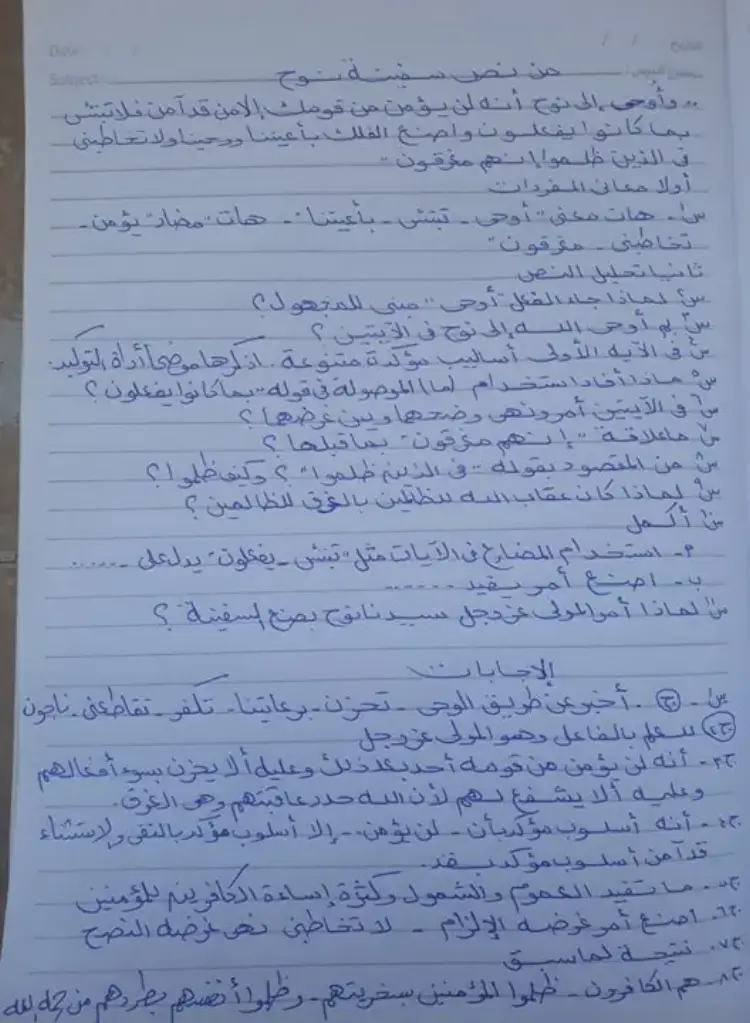 Date
Subject
من نص سفينة نوح
"وأُوحى إلى نوح أنه لن يؤمن من قومك إلا من قد آمن فلا تبتئس
بما كانوا يفعلون واصنع الفلك بأعيننا ووحينا ولا تخاطبنى
فى الذين ظلموا إنهم مغرقون"
أولا معانى المفردات
س١- هات معنى "أوحى - تبتئس - بأعيننا" - هات "مضاد" يؤمن -
تخاطبنى - مغرقون"
ثانيا تحليل النص
س٢ لماذا جاء الفعل "أوحى" مبنى للمجهول؟
س٣ بم أوحى الله إلى نوح فى الآيتين؟
س٤ فى الآية الأولى أساليب مؤكدة متنوعة. اذكرها موضحاً أداة التوكيد.
س٥ ماذا أفاد استخدام (ما) الموصولة فى قوله "بما كانوا يفعلون"؟
س٦ فى الآيتين أمر ونهى وضحها وبين غرضها؟
س٧ ما علاقة "إنهم مغرقون" بما قبلها؟
س٨ من المقصود بقوله "فى الذين ظلموا"؟ وكيف ظلموا؟
س٩ لماذا كان عقاب الله للظالمين بالغرق للظالمين؟
س١٠ أكمل
م- استخدام المضارع فى الآيات مثل "تبتئس - يفعلون" يدل على ......
ب- اصنع أمر يفيد ......
س١١ لماذا أمر المولى عز وجل سيدنا نوح بصنع السفينة؟
الإجابات
س١- ج. أخبر عن طريق الوحى - تحزن - برعايتنا - تكفر - تقاطعنى - ناجون
ج٢ للعلم بالفاعل وهو المولى عز وجل
ج٣- أنه لن يؤمن من قومه أحد بعد ذلك وعليه ألا يحزن بسوء أفعالهم
وعليه ألا يشفع لهم لأن الله حدد عاقبتهم وهى الغرق.
ج٤- أنه أسلوب مؤكد بأن - لن يؤمن -- إلا أسلوب مؤكد بالنفى والإستثناء
قد آمن أسلوب مؤكد بقد.
ج٥- ما تفيد العموم والشمول وكثرة إساءة الكافرين للمؤمنين
ج٦- اصنع أمر غرضه الإلزام - لا تخاطبنى نهى غرضه النصح
ج٧- نتيجة لما سبق
ج٨- هم الكافرون - ظلموا المؤمنين بسخريتهم - وظلموا أنفسهم بطردهم من رحمة الله